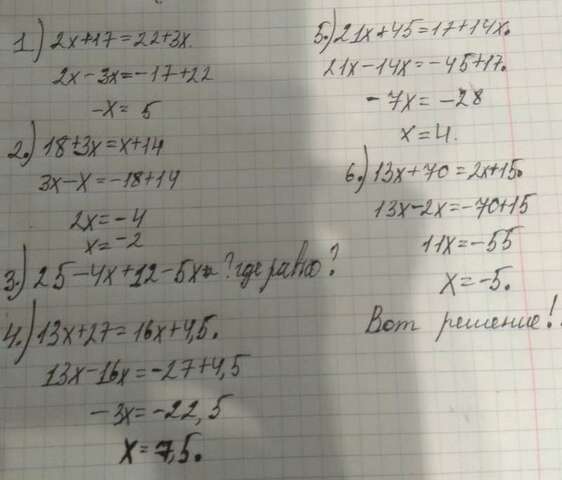 1.) 2x+17=22+3x.
2x-3x=-17+22
-x= 5
2.) 18+3x=x+14
3x-x=-18+14
2x=-4
x=-2
3.) 25-4x+12-5x= ? где равно?
4.) 13x+27=16x+4,5.
13x-16x=-27+4,5
-3x=-22,5
x=7,5.
5.) 21x+45=17+14x.
21x-14x=-45+17.
-7x=-28
x=4.
6.) 13x+70=2x+15.
13x-2x=-70+15
11x=-55
x=-5.
Вот решение!